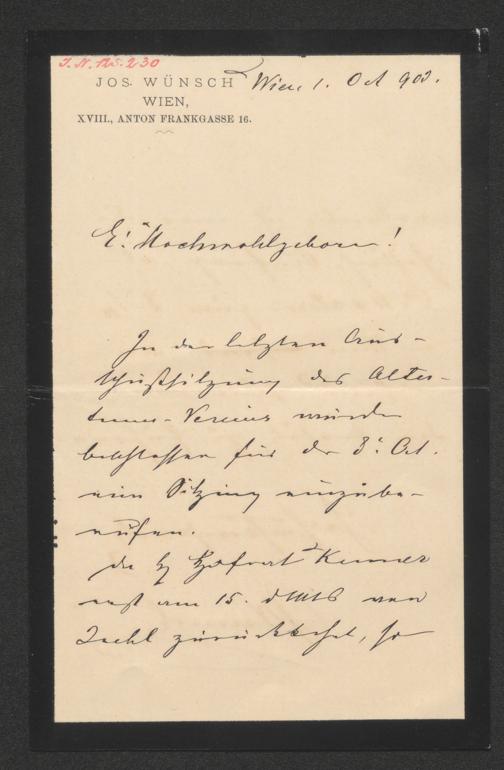 J. N. 125.230
JOS. WÜNSCH
WIEN,
XVIII., ANTON FRANKGASSE 16.
Wien, 1. Oct 903.
E! Hochwohlgeboren!
In der letzten Aus-
schußsitzung des Alter-
tums-Vereins wurde
beschlossen für den 3t Oct.
eine Sitzung einzube-
rufen.
Da H Hofrat Kenner
erst am 15. d Mts von
Ischl zurückkehrt, so